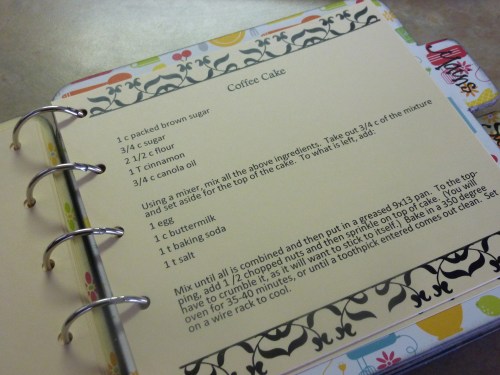 Coffee Cake
1 c packed brown sugar
3/4 c sugar
2 1/2 c flour
1 T cinnamon
3/4 c canola oil
Using a mixer, mix all the above ingredients. Take out 3/4 c of the mixture
and set aside for the top of the cake. To what is left, add:
1 egg
1 c buttermilk
1 t baking soda
1 t salt
Mix until all is combined and then put in a greased 9x13 pan. To the top-
ping, add 1 /2 chopped nuts and then sprinkle on top of cake. (You will
have to crumble it, as it will want to stick to itself.) Bake in a 350 degree
oven for 35-40 minutes, or until a toothpick entered comes out clean. Set
on a wire rack to cool.